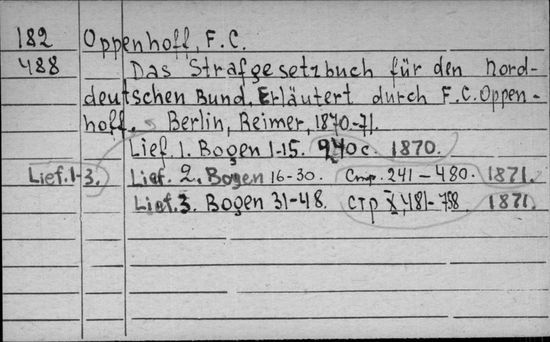 182 Oppenhoff, F. C.
488 Das Strafgesetzbuch für den Nord-
deutschen Bund. Erläutert durch F. C. Oppen-
hoff. Berlin, Reimer, 1870-71.
Lief. 1. Bogen 1-15. 240 c. 1870.
Lief. 1-3. Lief. 2. Bogen 16-30. Стр. 241-480. 1871.
Lief. 3. Bogen 31-48. стр X, 481-758 1871.